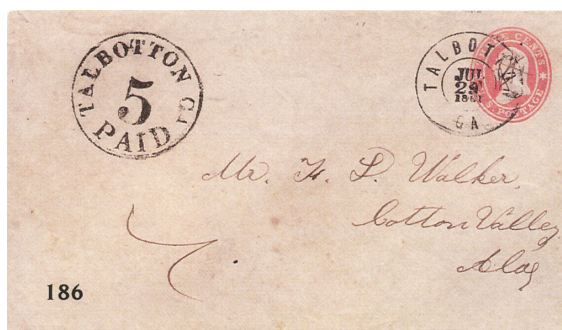 TALBOTTON Ga
5
PAID
TALBOTTON
JUL
29
1861
GA
CENTS
U.S. POSTAGE
Mr. H. L. Walker,
Cotton Valley
Ala
186